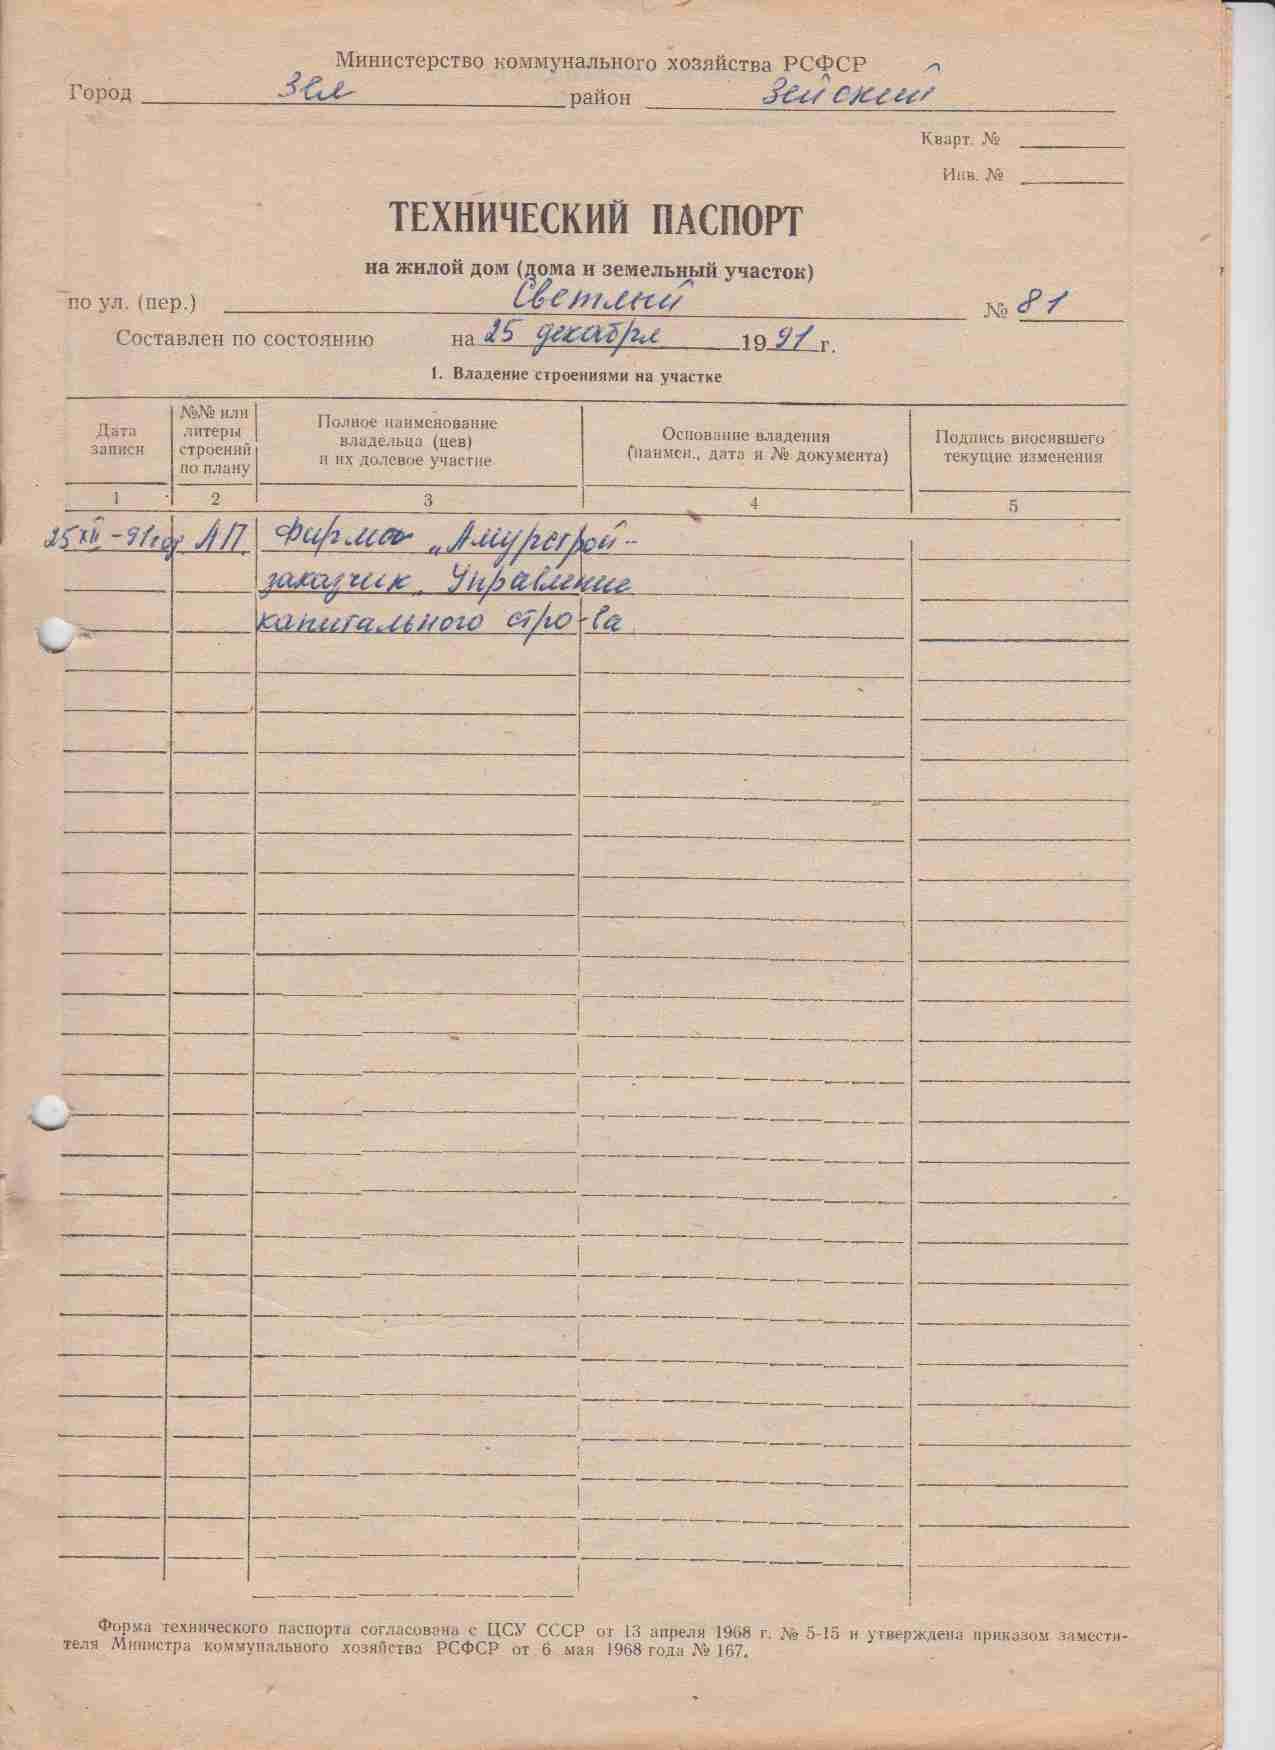 Министерство коммунального хозяйства РСФСР
Город Зея район Зейский
Кварт. №
Инв. №
ТЕХНИЧЕСКИЙ ПАСПОРТ
на жилой дом (дома и земельный участок)
по ул. (пер.) Светлый № 81
Составлен по состоянию на 25 декабря 1991 г.
1. Владение строениями на участке
Дата записи
№№ или литеры строений по плану
Полное наименование владельца (цев) и их долевое участие
Основание владения (наимен., дата и № документа)
Подпись вносившего текущие изменения
1 2 3 4 5
25 XII - 91год АП Фирма „Амурстрой-
заказчик„ Управление
капитального стро-ва
Форма технического паспорта согласована с ЦСУ СССР от 13 апреля 1968 г. № 5-15 и утверждена приказом замести-
теля Министра коммунального хозяйства РСФСР от 6 мая 1968 года № 167.